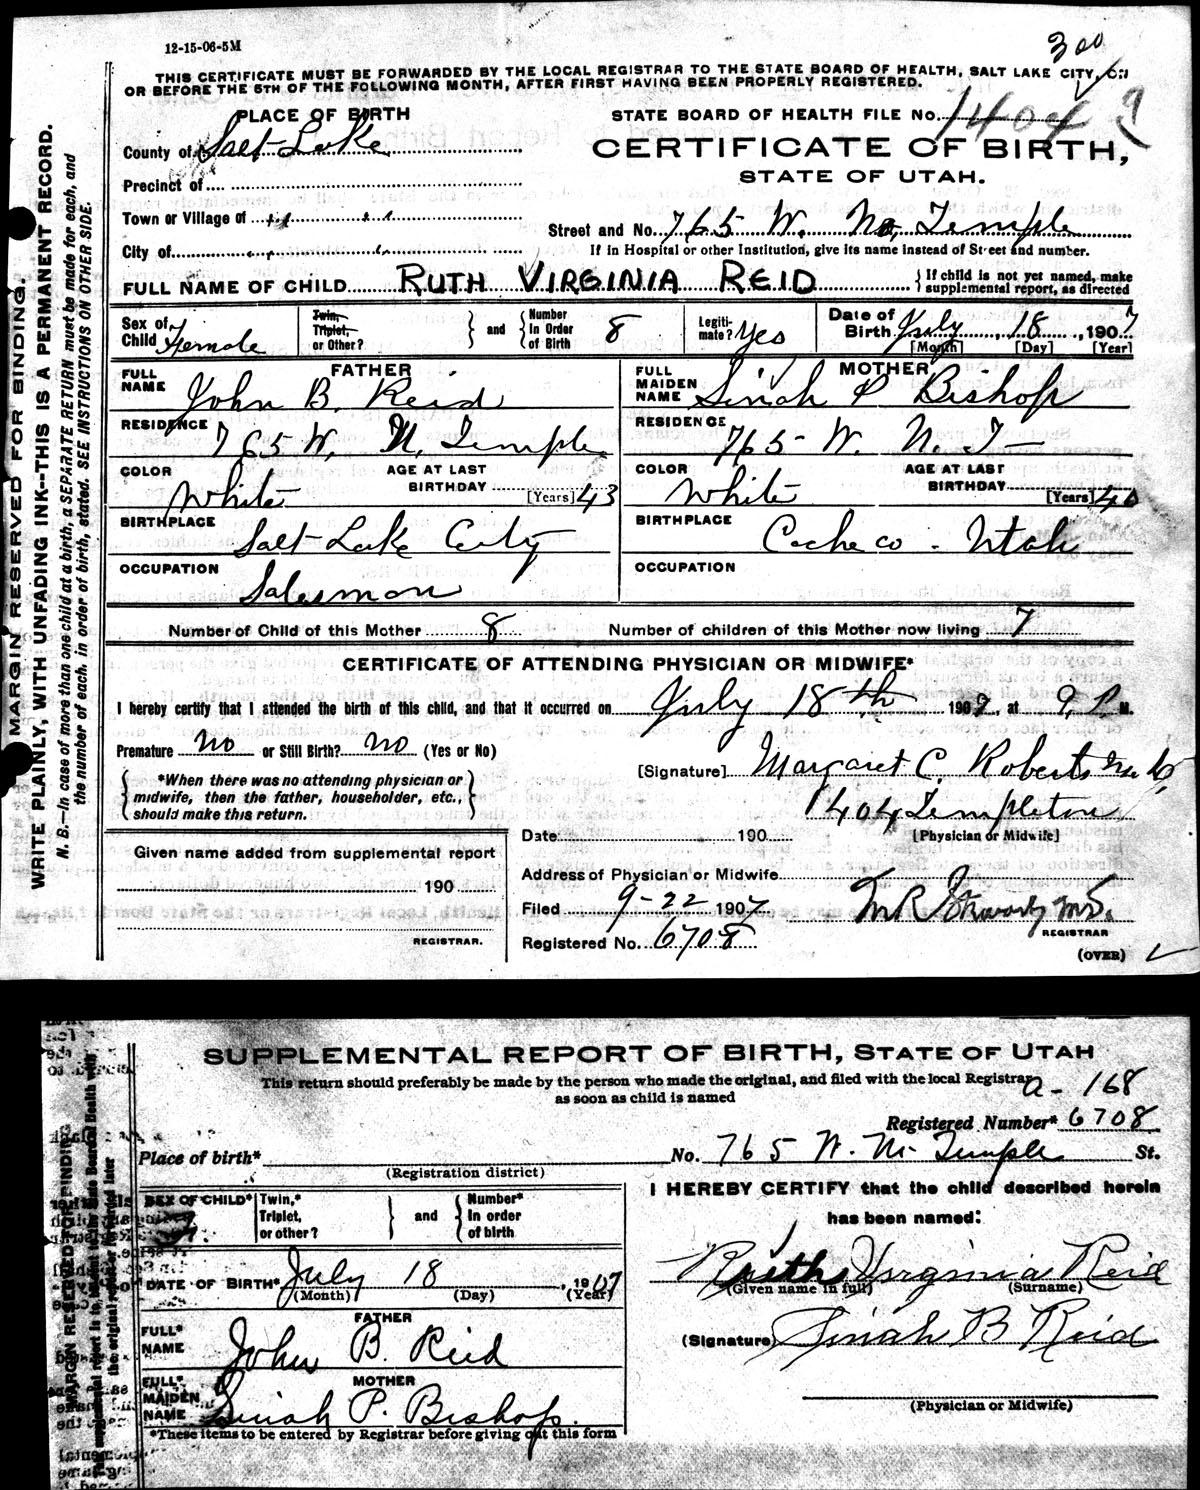 12-15-06-5M
300
THIS CERTIFICATE MUST BE FORWARDED BY THE LOCAL REGISTRAR TO THE STATE BOARD OF HEALTH, SALT LAKE CITY, ON
OR BEFORE THE 5TH OF THE FOLLOWING MONTH, AFTER FIRST HAVING BEEN PROPERLY REGISTERED.
PLACE OF BIRTH
County of Salt Lake
Precinct of
Town or Village of
City of
STATE BOARD OF HEALTH FILE No. 1404
CERTIFICATE OF BIRTH,
STATE OF UTAH.
Street and No. 765 W. No, Temple
If in Hospital or other Institution, give its name instead of Street and number.
FULL NAME OF CHILD RUTH VIRGINIA REID { If child is not yet named, make supplemental report, as directed
Sex of Child Female
Twin, Triplet, or Other? } and { Number In Order of Birth 8
Legitimate? Yes
Date of Birth July 18, 1907
[Month] [Day] [Year]
FATHER
FULL NAME John B. Reid
RESIDENCE 765 W. N. Temple
COLOR White
AGE AT LAST BIRTHDAY [Years] 43
BIRTHPLACE Salt Lake City
OCCUPATION Salesman
MOTHER
FULL MAIDEN NAME Sinah P Bishop
RESIDENCE 765 - W. N. T
COLOR White
AGE AT LAST BIRTHDAY [Years] 40
BIRTHPLACE Cache co - Utah
OCCUPATION
Number of Child of this Mother 8 Number of children of this Mother now living 7
CERTIFICATE OF ATTENDING PHYSICIAN OR MIDWIFE*
I hereby certify that I attended the birth of this child, and that it occurred on July 18th 1907, at 9 P. M.
Premature No or Still Birth? No (Yes or No)
{ *When there was no attending physician or midwife, then the father, householder, etc., should make this return. }
[Signature] Margaret C. Roberts
1404 Templeton
[Physician or Midwife]
Date 190
Given name added from supplemental report
190
REGISTRAR.
Address of Physician or Midwife
Filed 9-22 1907
REGISTRAR
Registered No. 6708
(OVER)
MARGIN RESERVED FOR BINDING.
WRITE PLAINLY, WITH UNFADING INK--THIS IS A PERMANENT RECORD.
N. B.—In case of more than one child at a birth, a SEPARATE RETURN must be made for each, and
the number of each, in order of birth, stated. SEE INSTRUCTIONS ON OTHER SIDE.
SUPPLEMENTAL REPORT OF BIRTH, STATE OF UTAH
This return should preferably be made by the person who made the original, and filed with the local Registrar
as soon as child is named
a - 168
Registered Number* 6708
Place of birth* No. 765 W. N. Temple St.
(Registration district)
SEX OF CHILD*
Twin,* Triplet, or other? } and { Number* In order of birth
I HEREBY CERTIFY that the child described herein
has been named:
DATE OF BIRTH* July 18, 1907
(Month) (Day) (Year)
Ruth Virginia Reid
(Given name in full) (Surname)
FATHER
FULL* NAME John B. Reid
(Signature) Sinah B Reid
MOTHER
FULL* MAIDEN NAME Sinah P. Bishop.
(Physician or Midwife)
*These items to be entered by Registrar before giving out this form
MARGIN RESERVED FOR BINDING